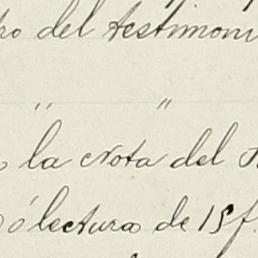 del testimoni
" "
la nota del
ó lectura de 15 f.